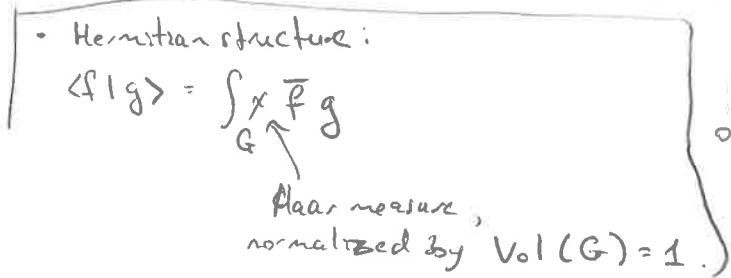 • Hermitian structure:
<f|g> = ∫_G * f̄ g
Haar measure,
normalized by Vol(G) = 1.)